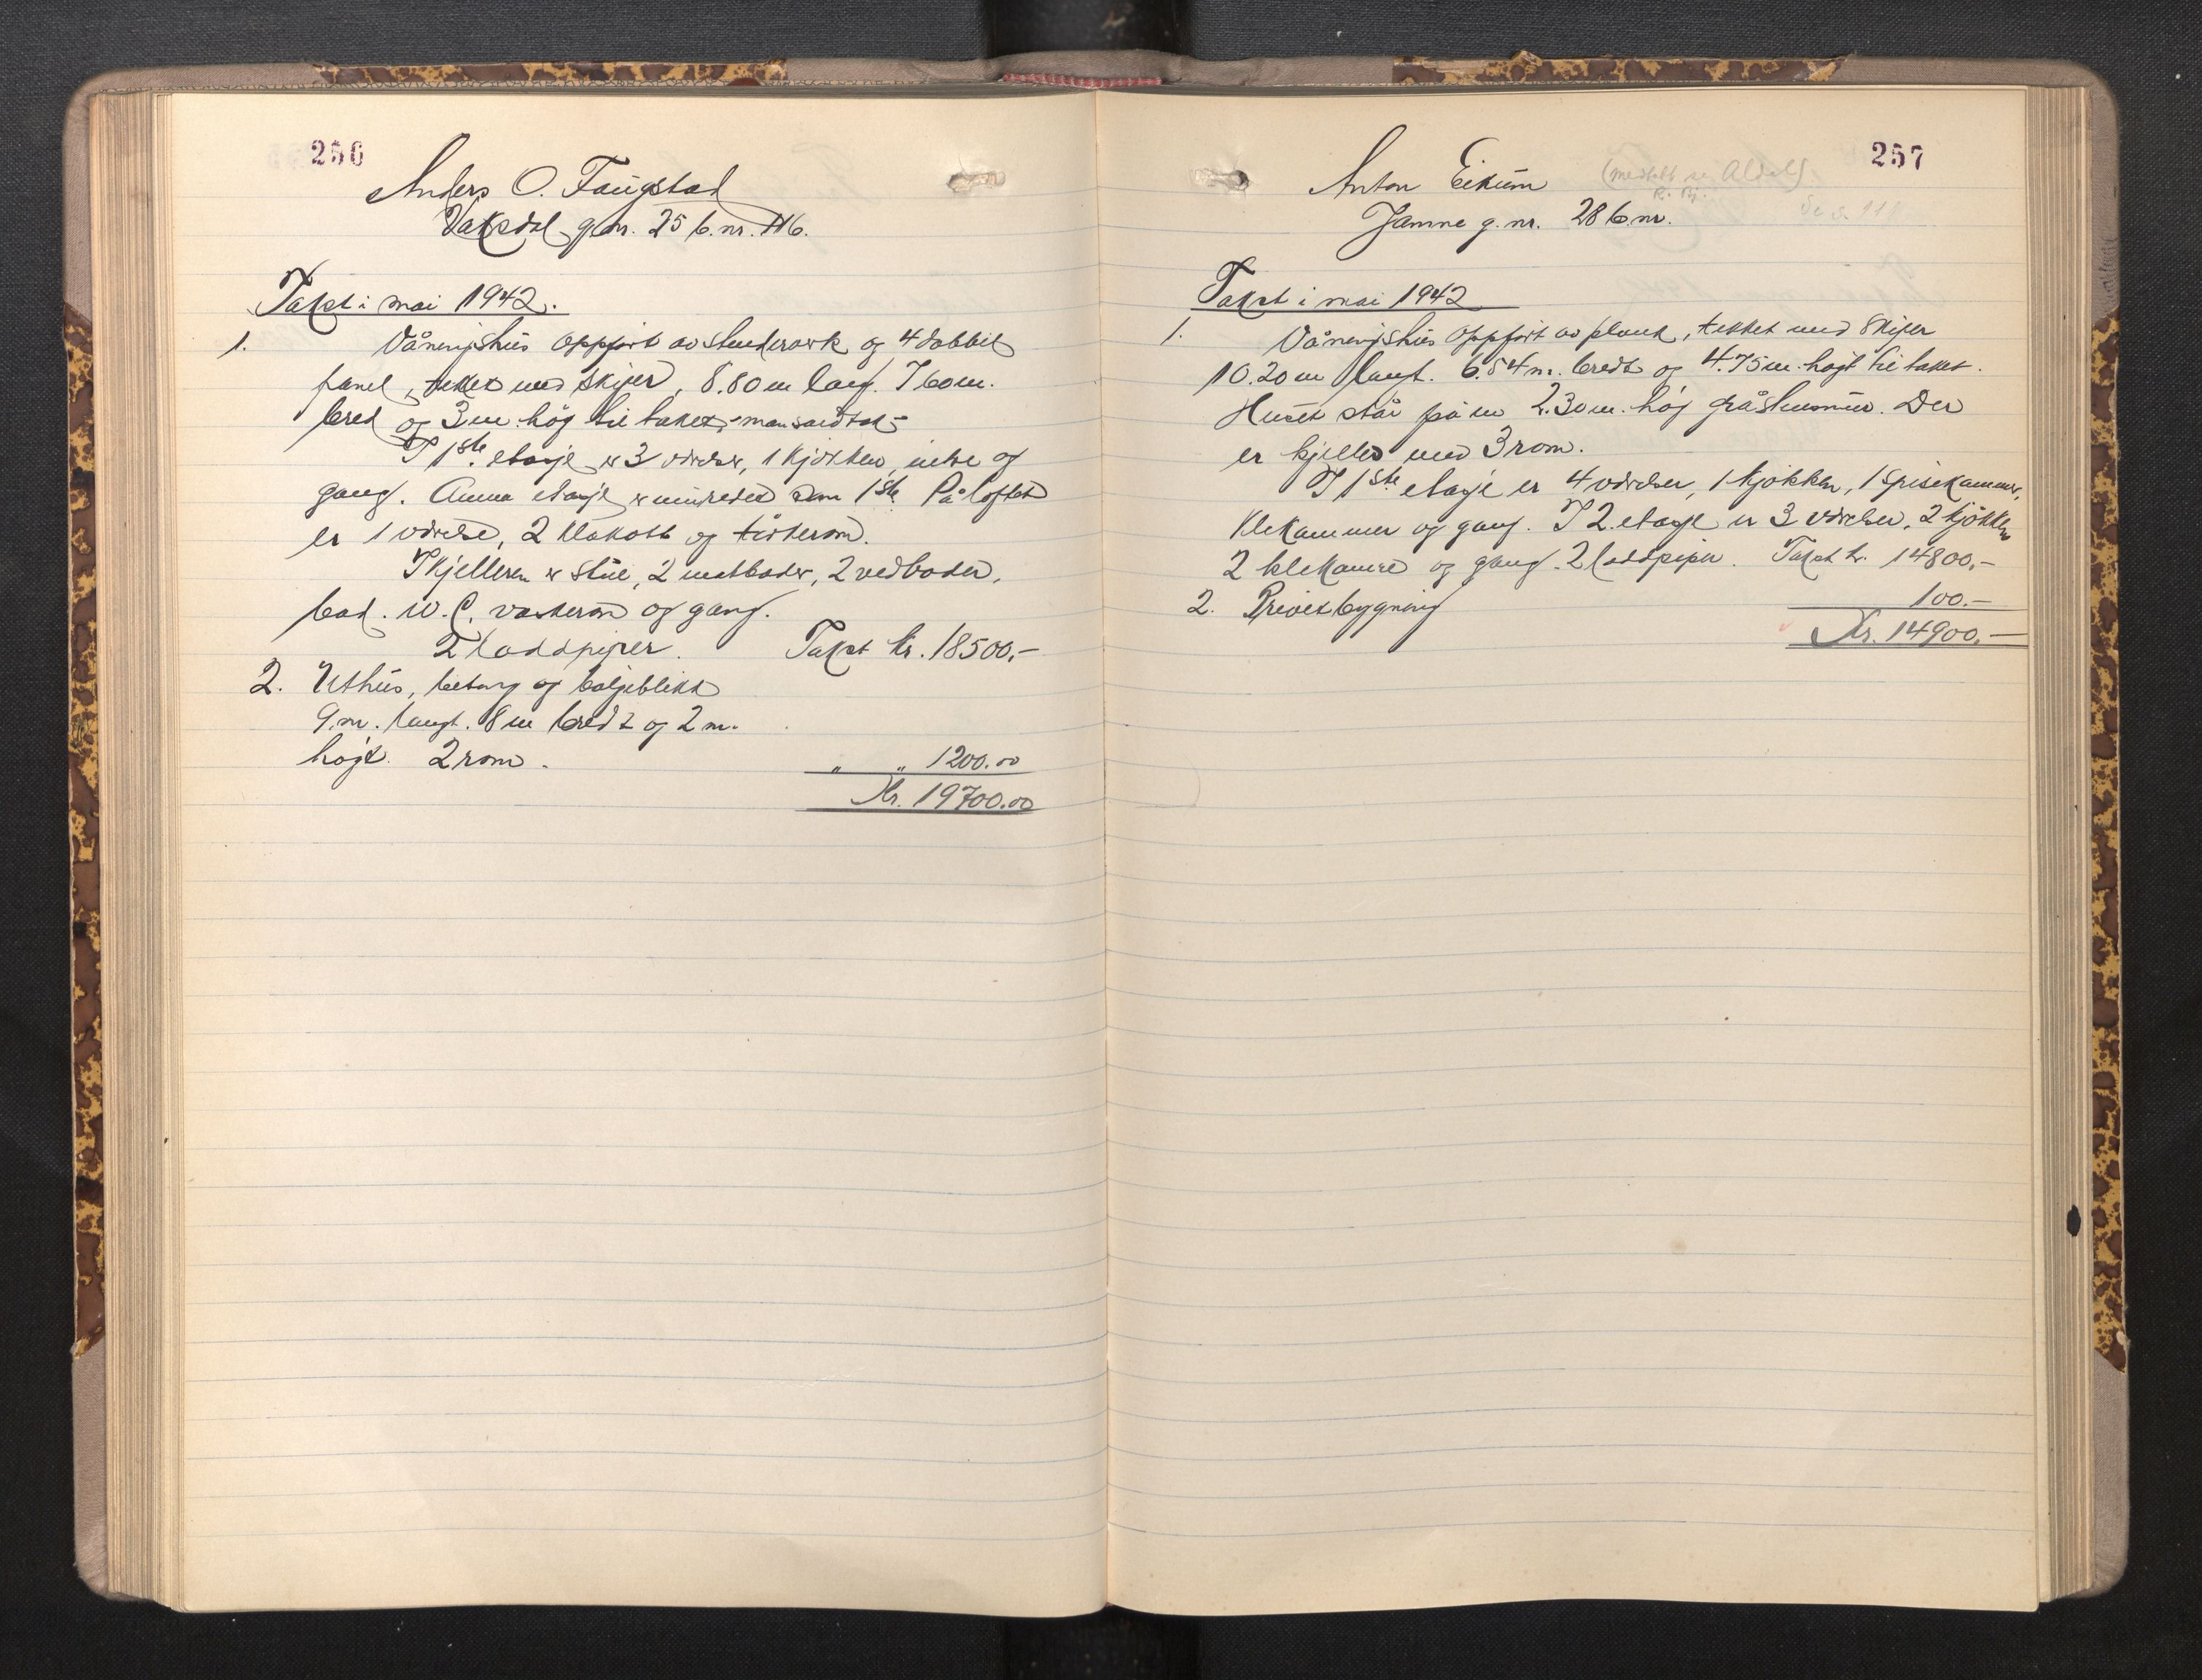 256
Anders O. Faugstad
Vaksdal g.nr. 25 b.nr. 116.
Takst i mai 1942.
1. Våningshus oppført av stenderverk og 4 dobbelt
panel, tekket med skifer, 8.80 m lang. 7 60 m.
bred og 3 m. høg til taket, - mansardtak -
I 1ste etasje er 3 værelser, 1 kjøkken, entre og
gang. Anna etasje er innredet som 1ste. På loftet
er 1 værelse, 2 klekott og tørkerom.
I kjelleren er stue, 2 matboder, 2 vedboder,
bad. W.C. vaskerom og gang.
2 loddpiper. Takst kr. 18500,-
2. Uthus, betong og bølgeblikk
9. m. langt. 8 m bredt og 2 m.
høgt. 2 rom. " " 1200.00
Kr. 19700.00
257
Anton Eikum (medtatt se Aldal)
Jamne g. nr. 28 b.nr.
Takst i mai 1942
1. Våningshus oppført av plank, tekket med skifer
10.20 m langt. 6.54 m. bredt og 4.75 m. høgt til taket.
Huset står på en 2.30 m. høg gråstensmur. Der
er kjeller med 3 rom.
I 1ste etasje er 4 værelser, 1 kjøkken, 1 spisekammer,
klekammer og gang. I 2. etasje er 3 værelser, 2 kjøkken
2 klekamre og gang. 2 loddpiper. Takst kr. 14800,-
2. Privetbygning 100.-
Kr. 14900,-